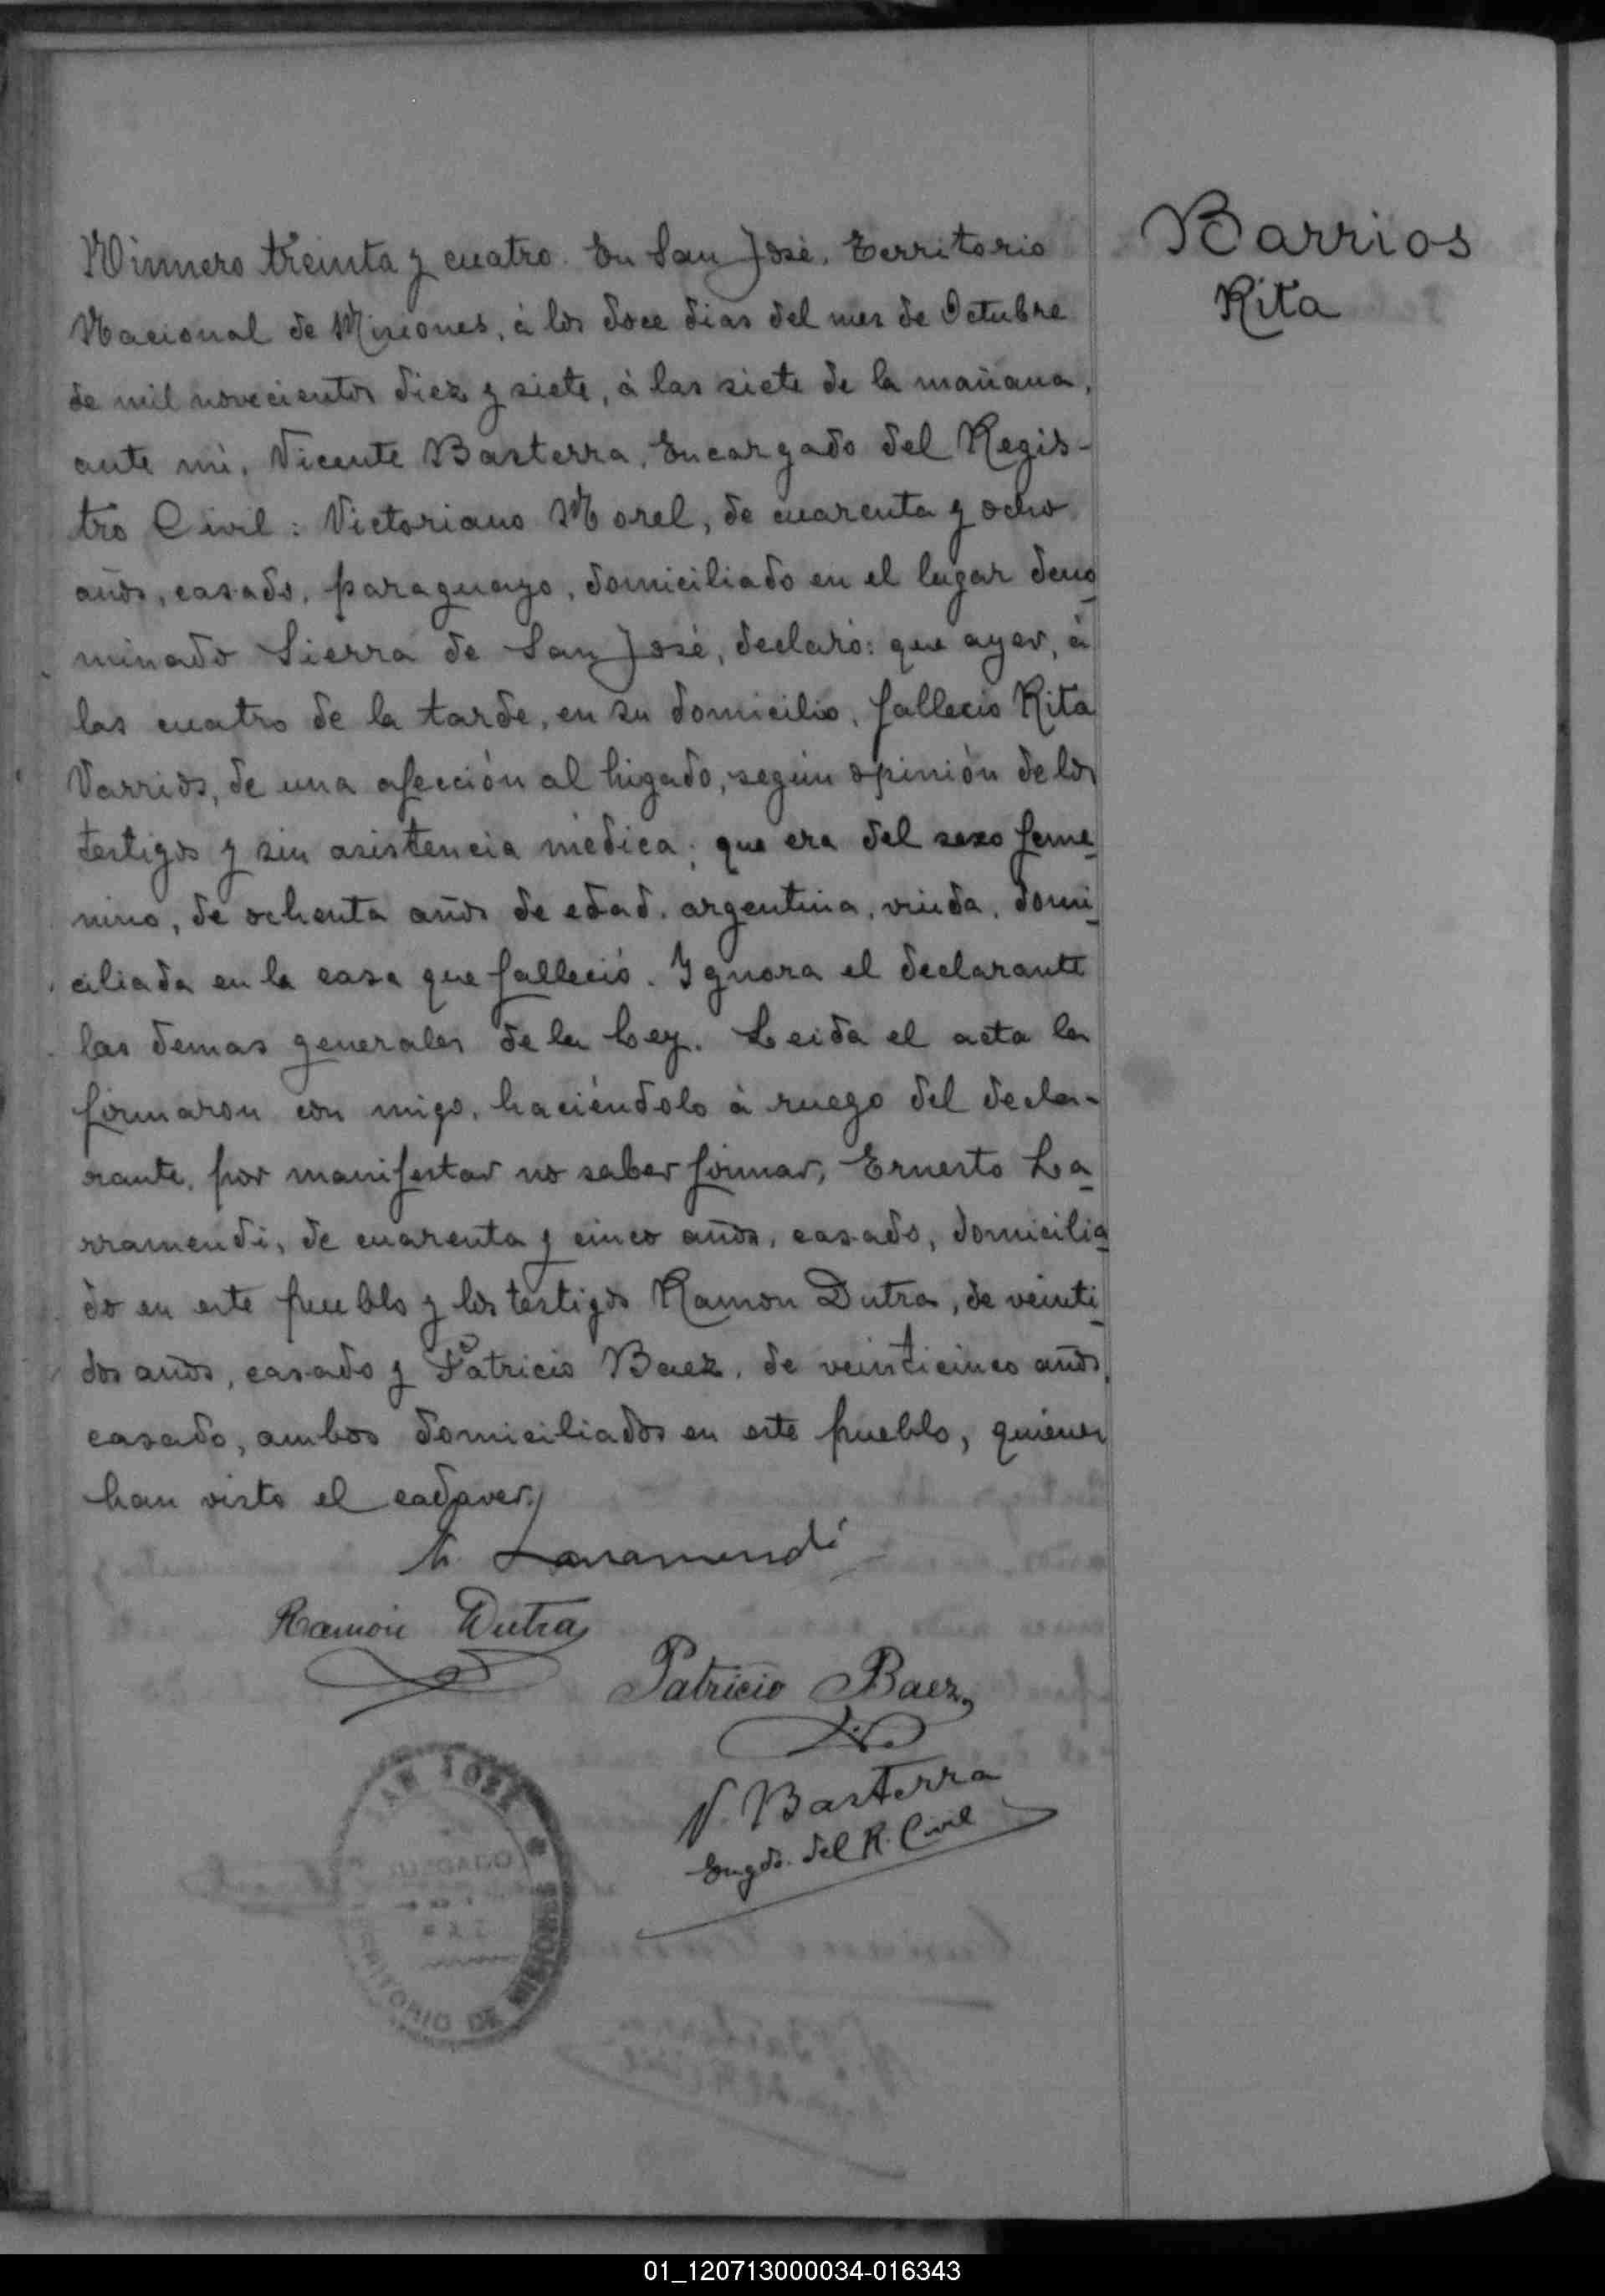 Barrios
Rita
Número treinta y cuatro. En San José, Territorio
Nacional de Misiones, á los doce dias del mes de Octubre
de mil novecientos diez y siete, á las siete de la mañana,
ante mi, Vicente Basterra, Encargado del Regis-
tro Civil: Victoriano Morel, de cuarenta y ocho
años, casado, paraguayo, domiciliado en el lugar deno
minado Sierra de San José, declaró: que ayer, á
las cuatro de la tarde, en su domicilio, fallecio Rita
Varrios, de una afección al higado, según opinión de los
testigos y sin asistencia médica; que era del sexo feme
nino, de ochenta años de edad, argentina, viuda, domi
ciliada en la casa que falleció. Ignora el declarante
las demas generales de la Ley. Leida el acta la
firmaron con migo, haciéndolo á ruego del decla-
rante, por manifestar no saber firmar, Ernesto La
rramendi, de cuarenta y cinco años, casado, domicilia
do en este pueblo y los testigos Ramon Dutra, de veinti
dos años, casado y Patricio Baez, de veinticinco años,
casado, ambos domiciliados en este pueblo, quienes
han visto el cadaver.
Larramendi
Ramón Dutra
Patricio Baez
V. Basterra
Engdo. del R. Civil
SAN JOSE
JUZGADO
TERRITORIO DE MISIONES
01_120713000034-016343